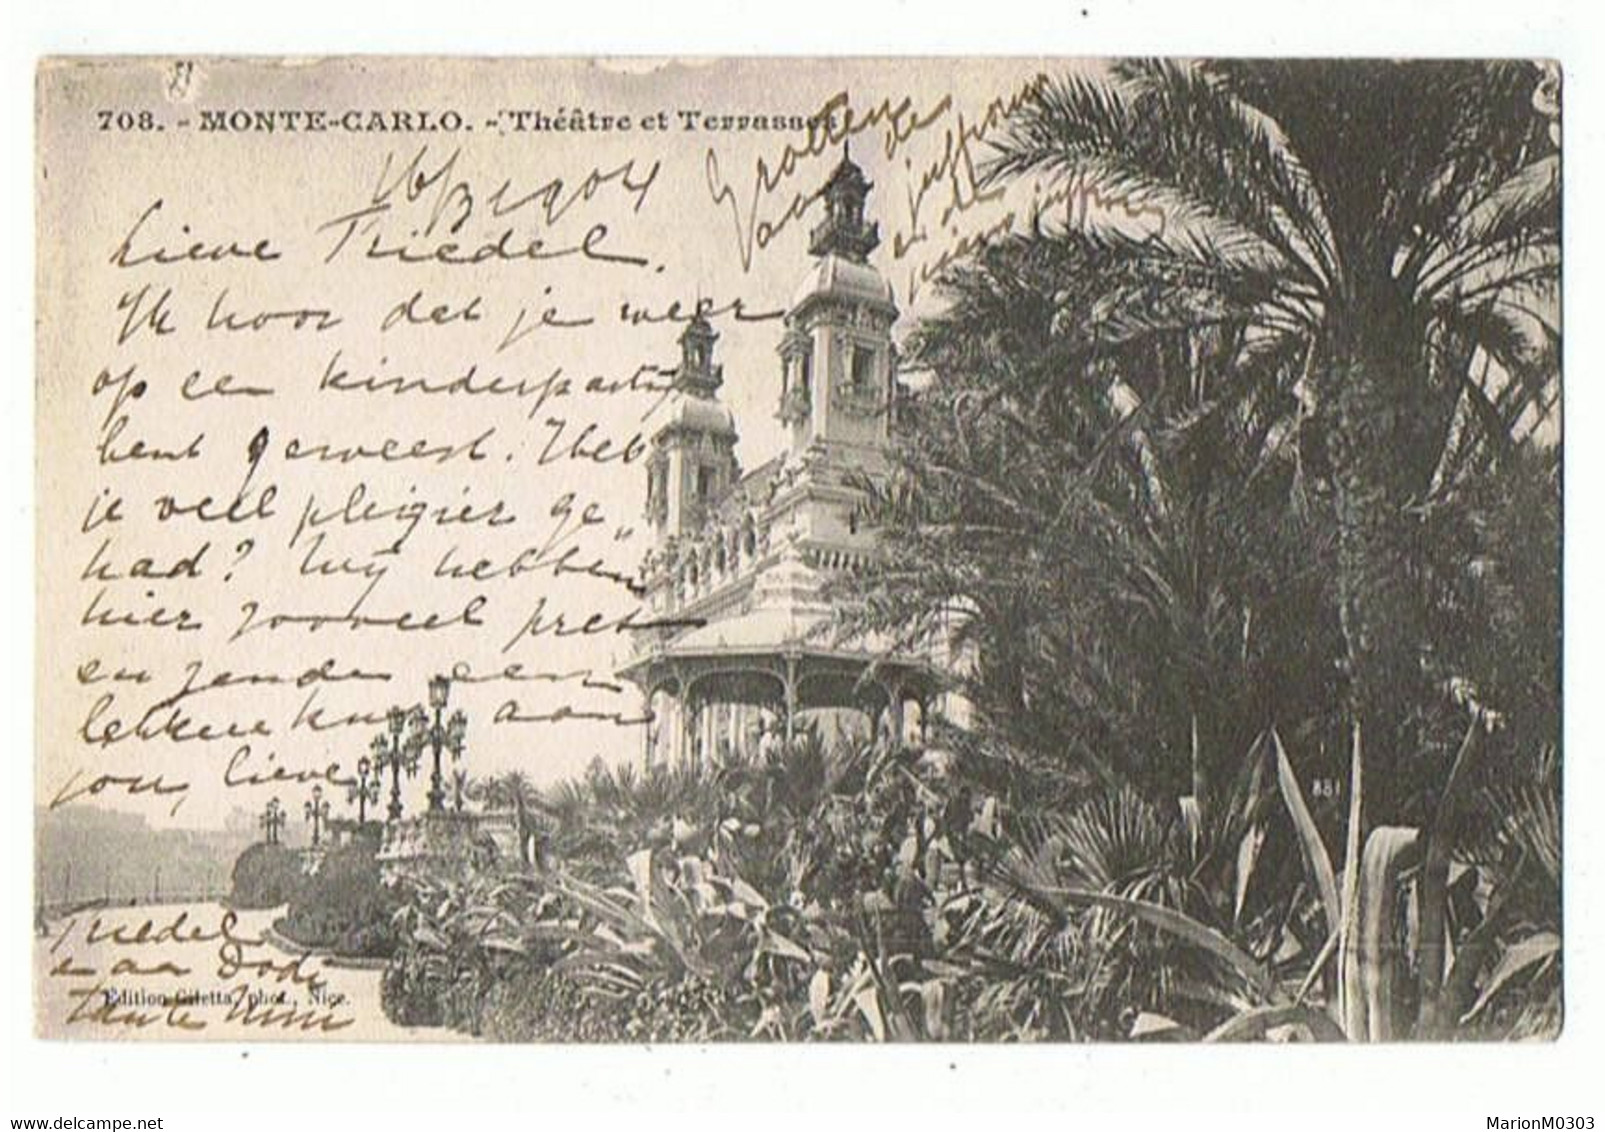 708. - MONTE-CARLO. - Théâtre et Terrasses
16/3 1904
Lieve Friedel.
Ik hoor dat je weer
op een kinderparty
bent geweest. Heb
je veel pleizier ge„
had? Wij hebben
hier zooveel pret
en zenden een
lekkere kus aan
jou, lieve
Friedel
en aan Dodi
Tante Mimi
Groeten
aan de
juffrouw
en de
juffrouw
881
Edition Giletta, phot., Nice.
delcampe.net
MarionM0303